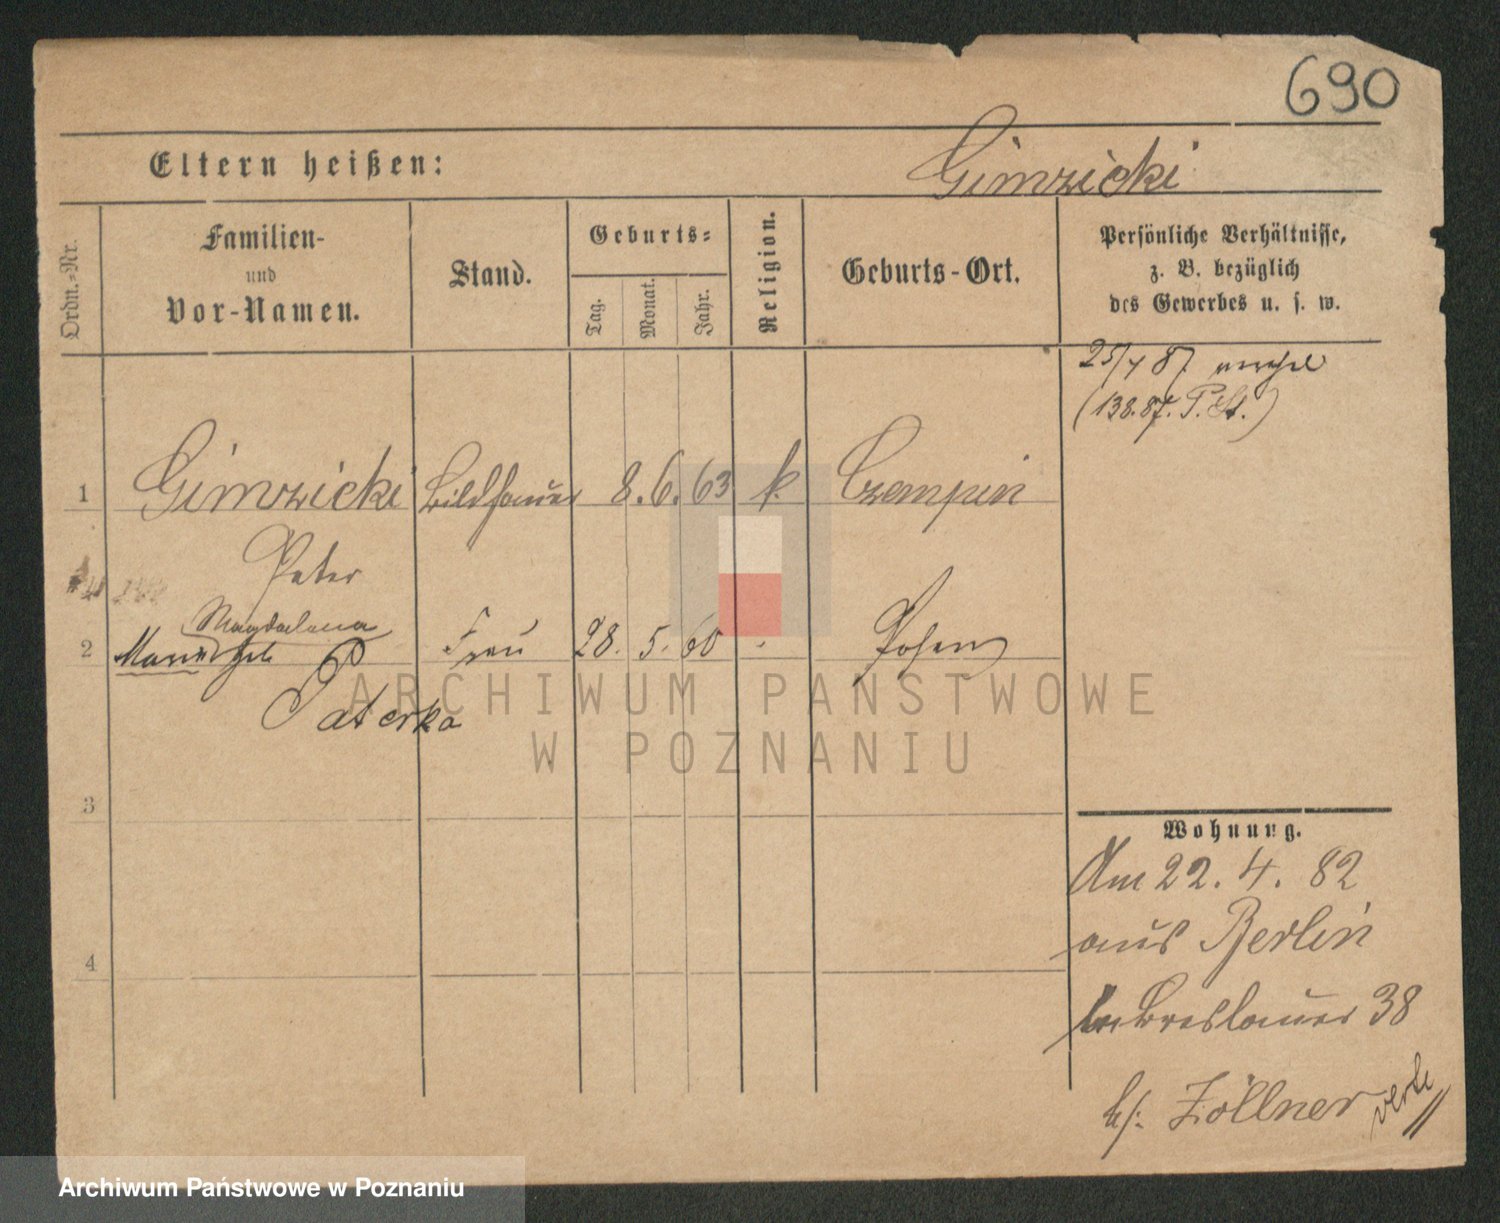 690
Eltern heißen:
Gimzicki
Ordn.-Nr.
Familien-
und
Vor-Namen.
Stand.
Geburts-
Tag.
Monat.
Jahr.
Religion.
Geburts-Ort.
Persönliche Verhältnisse,
z. B. bezüglich
des Gewerbes u. s. w.
(138.87. P. St.)
1 Gimzicki Bildhauer 8. 6. 63 k. Czempin
Peter
Magdalena
2 Frau 28. 5. 60 Posen
Paterka
3
4
Wohnung.
Am 22. 4. 82
aus Berlin
Breslauer 38
b/: Zöllner verte
ARCHIWUM PAŃSTWOWE
W POZNANIU
Archiwum Państwowe w Poznaniu